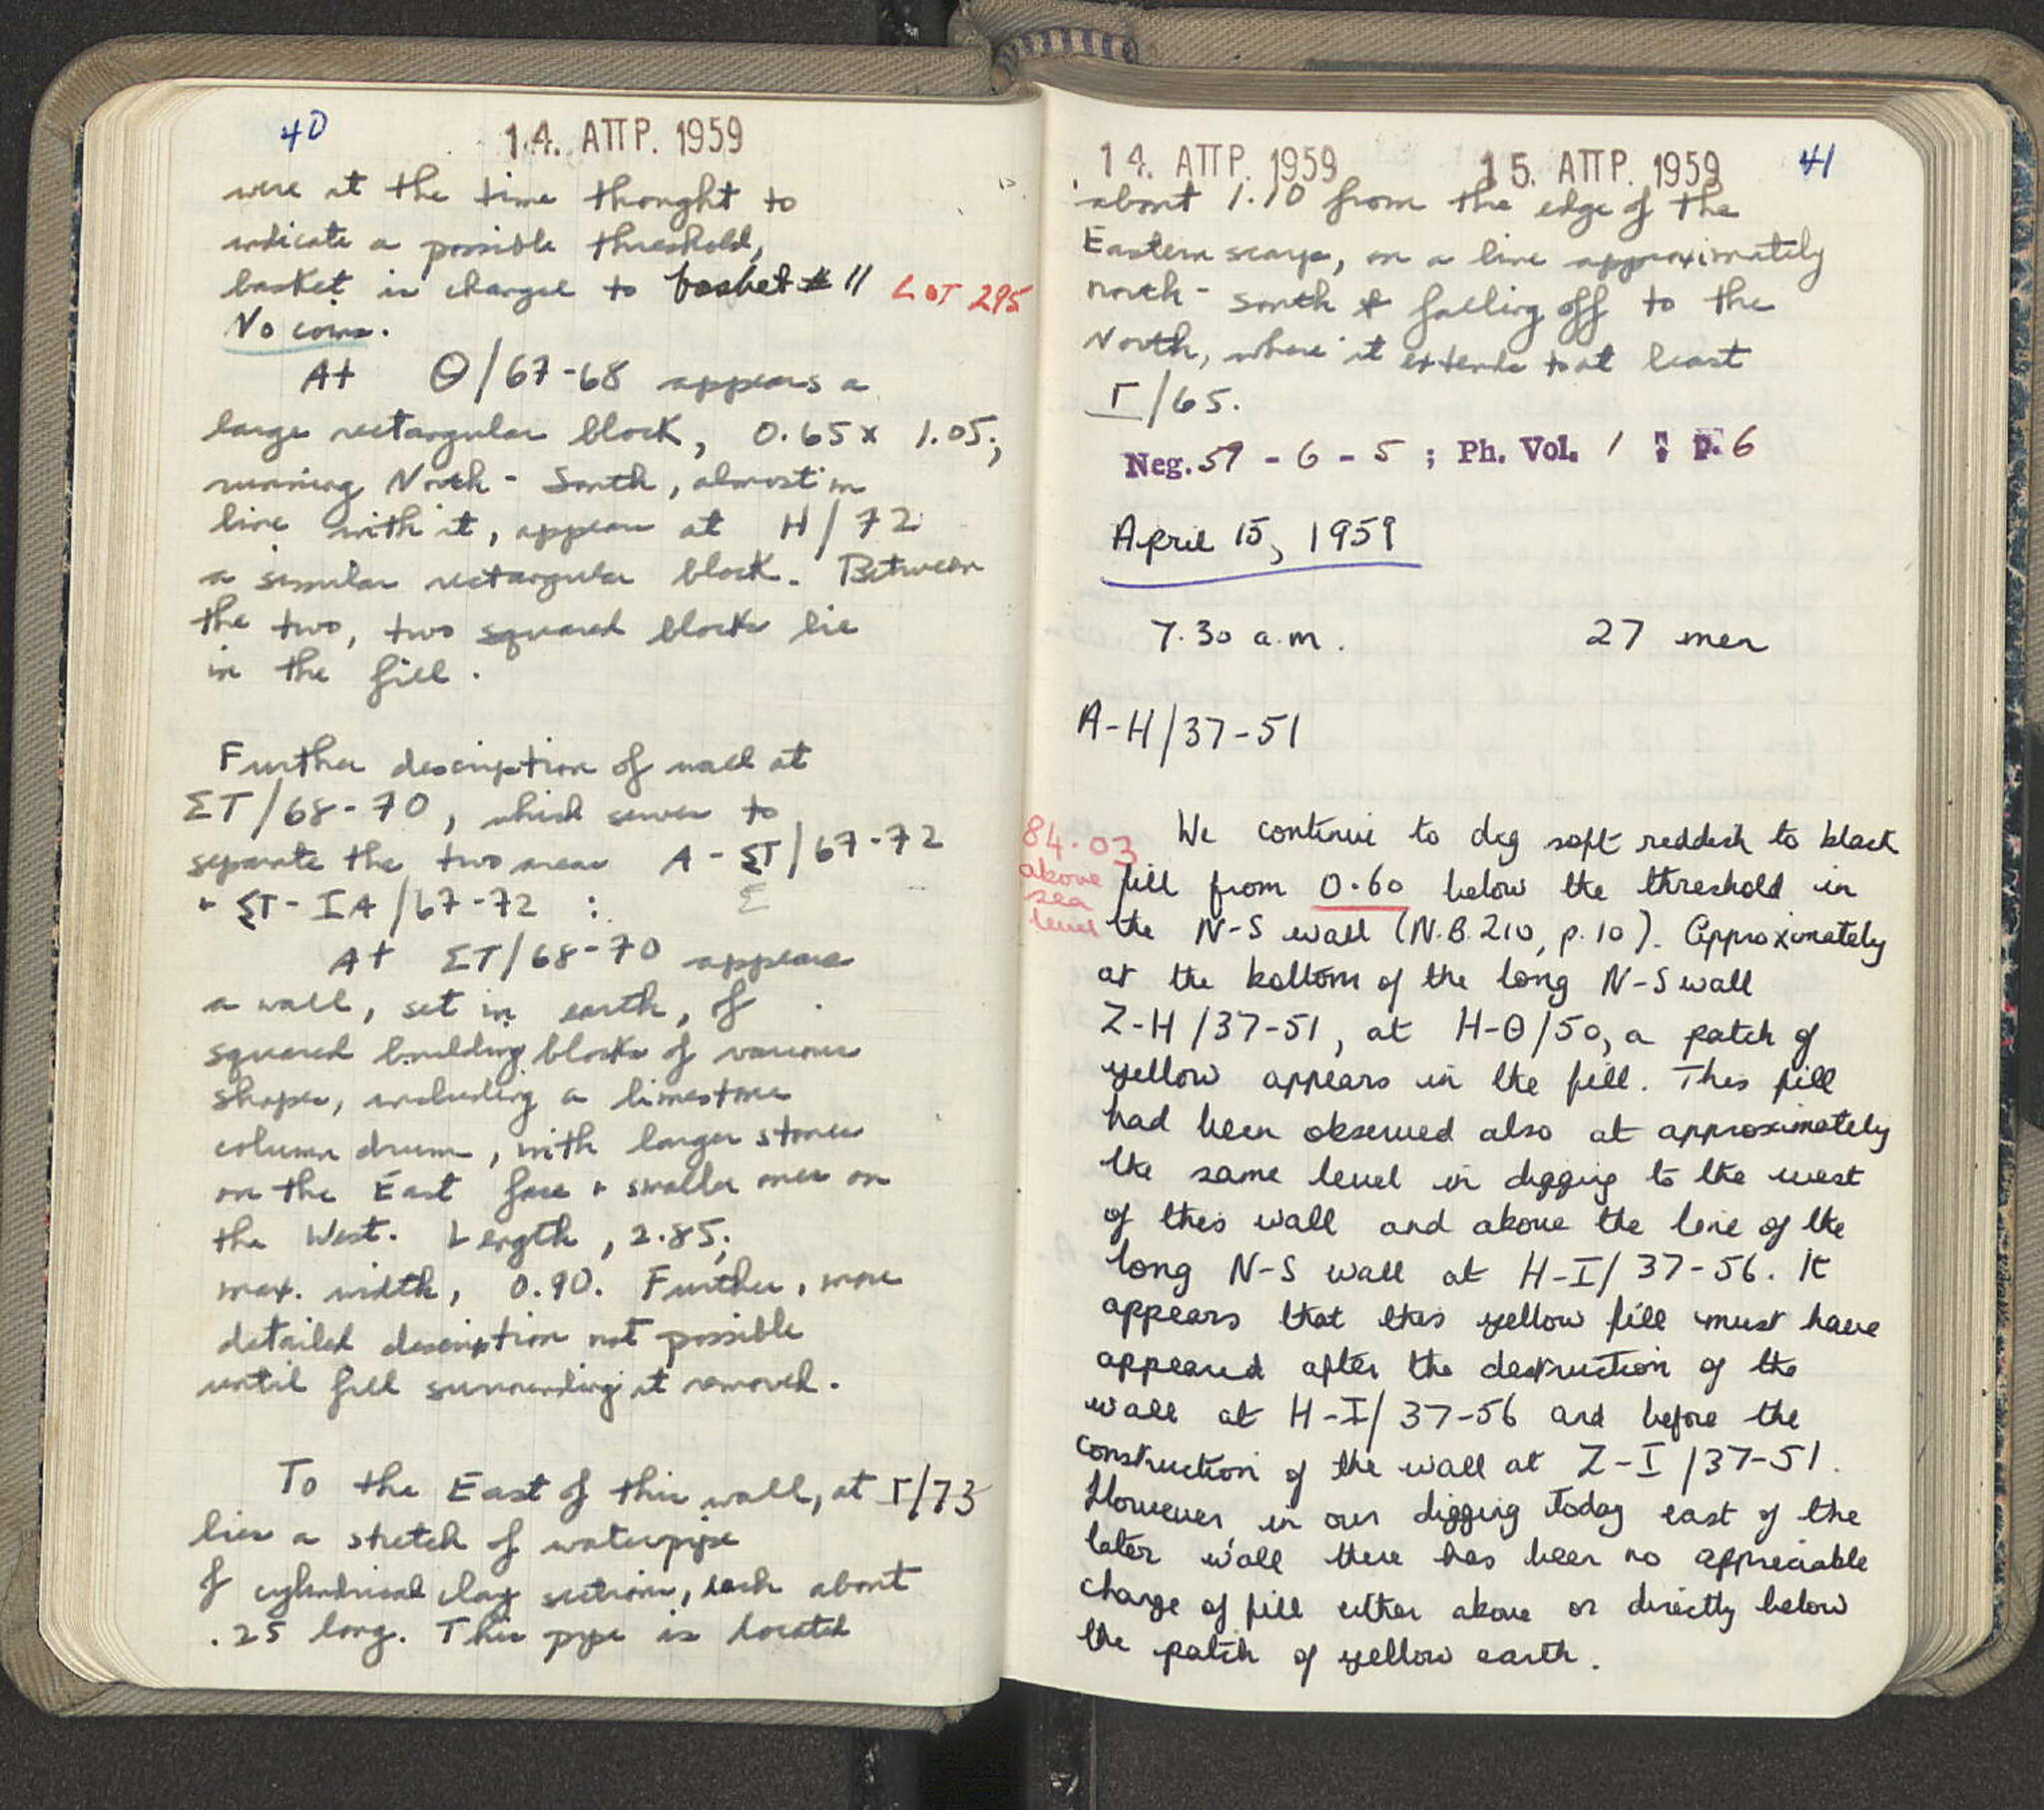 40
14. ΑΠΡ. 1959
were at the time thought to
indicate a possible threshold,
basket is changed to basket # 11 LOT 295
No coins.
At Θ/67-68 appears a
large rectangular block, 0.65 x 1.05;
running North - South, almost in
line with it, appears at H/72
a similar rectangular block. Between
the two, two squared blocks lie
in the fill.
Further description of wall at
ΣT/68-70, which serves to
separate the two areas A-ΣT/67-72
+ ΣT-IA/67-72 : Σ
At ΣT/68-70 appears
a wall, set in earth, of
squared building blocks of various
shapes, including a limestone
column drum, with larger stones
on the East face + smaller ones on
the West. Length, 2.85;
max. width, 0.90. Further, more
detailed description not possible
until fill surrounding it removed.
To the East of this wall, at Γ/73
lies a stretch of waterpipe
of cylindrical clay sections, each about
.25 long. This pipe is located
14. ΑΠΡ. 1959 15. ΑΠΡ. 1959 41
about 1.10 from the edge of the
Eastern scarp, on a line approximately
north - south & falling off to the
North, where it extends to at least
Γ/65.
Neg. 59 - 6 - 5 ; Ph. Vol. 1 : p. 6
April 15, 1959
7.30 a.m. 27 men
A-H/37-51
We continue to dig soft reddish to black
fill from 0.60 below the threshold in
84.03
above
sea
level
the N-S wall (N.B. 210, p. 10). Approximately
at the bottom of the long N-S wall
Z-H/37-51, at H-Θ/50, a patch of
yellow appears in the fill. This fill
had been observed also at approximately
the same level in digging to the west
of this wall and above the line of the
long N-S wall at H-I/37-56. It
appears that this yellow fill must have
appeared after the destruction of the
wall at H-I/37-56 and before the
construction of the wall at Z-I/37-51.
However, in our digging today east of the
later wall there has been no appreciable
change of fill either above or directly below
the patch of yellow earth.